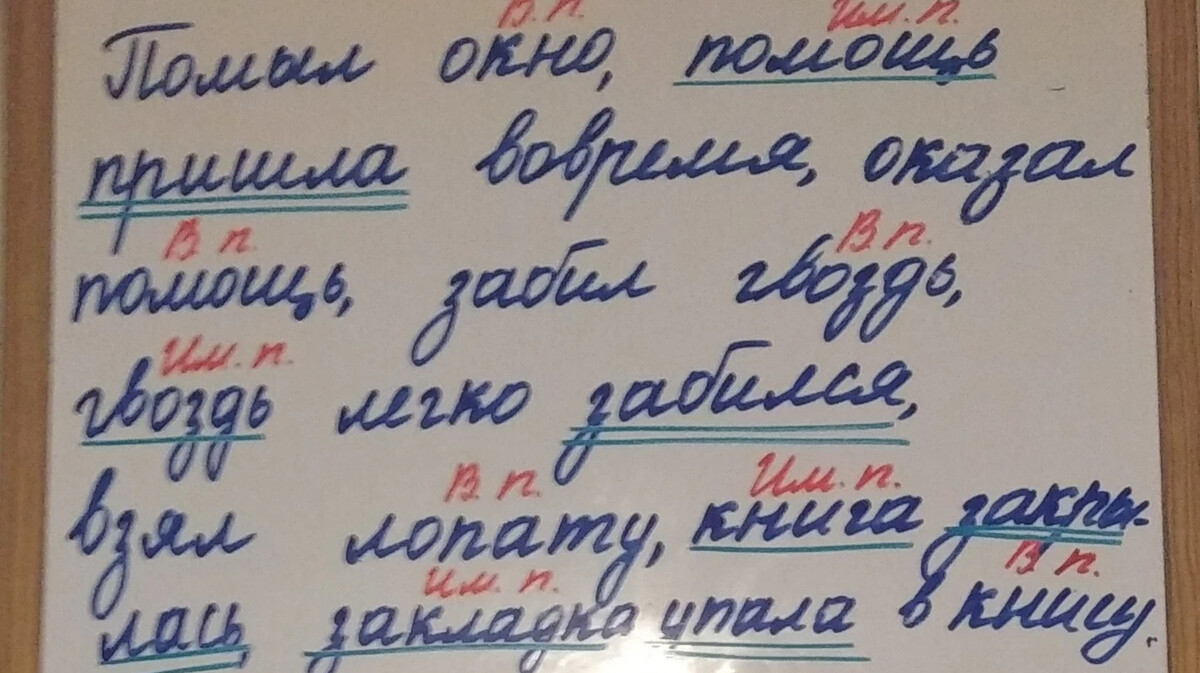 В.п. Им.п.
Помыл окно, помощь
пришла вовремя, оказал
В.п. В.п.
помощь, забил гвоздь,
Им.п.
гвоздь легко забился,
В.п. Им.п.
взял лопату, книга закры-
Им.п. В.п.
лась, закладка упала в книгу.